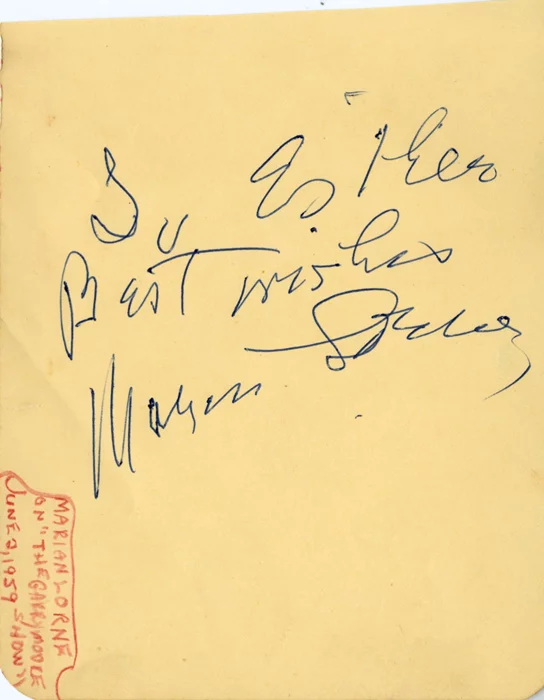 To Esther
Best wishes
Marion Lorne
MARIAN LORNE
ON "THE GARRY MOORE
JUNE 2, 1959 SHOW"